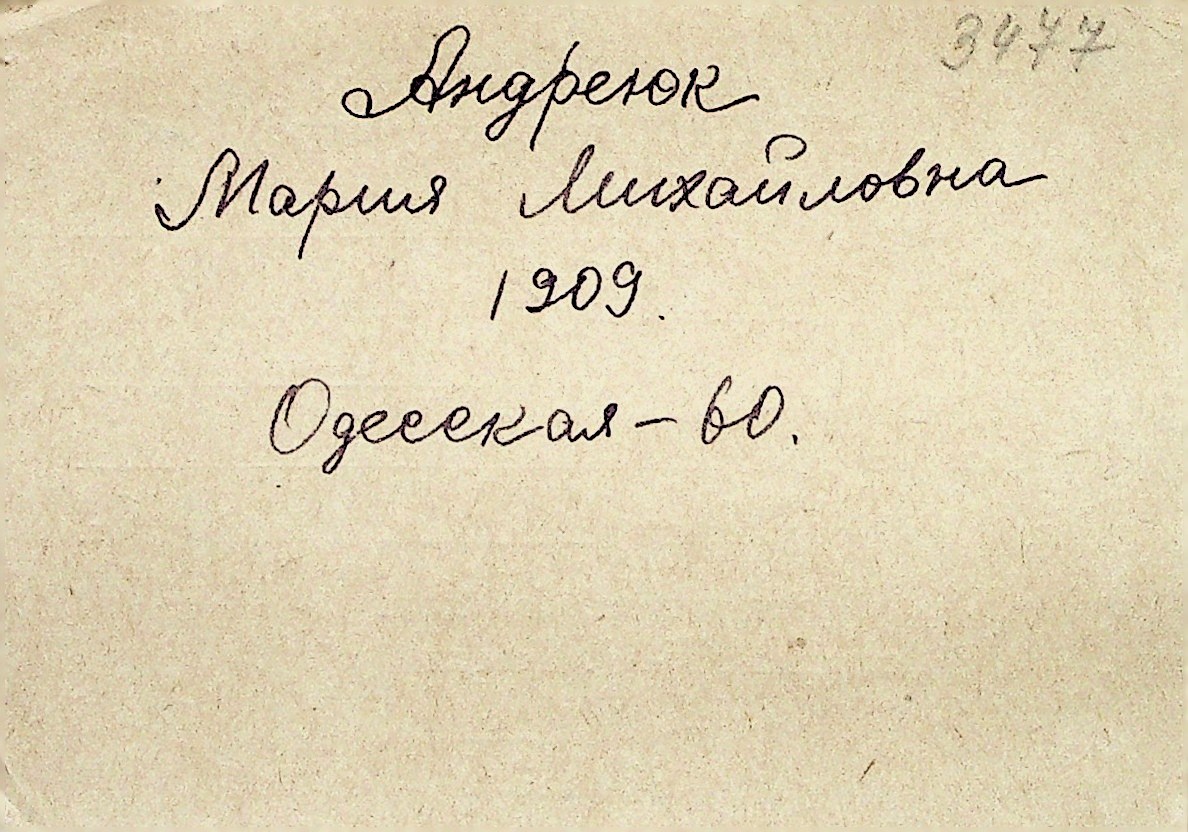 3477
Андреюк
Мария Михайловна
1909.
Одесская – 60.